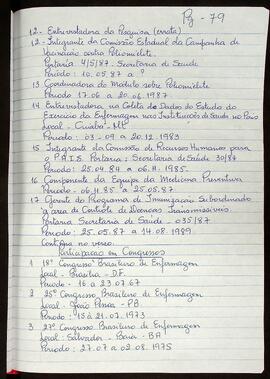 Pg - 79
12.- Entrevistadora da Pesquisa (errata)
12- Integrante da Comissão Estadual da Campanha de
Vacinação contra Poliomielite
Portaria 4/5/87. Secretaria de Saúde
Período: 10.05.87 a ?
13 Coordenadora do Módulo sobre Poliomielite
Período 17.06 a 20.06.1987
14 Entrevistadora na Coleta de Dados do Estudo do
Exercício da Enfermagem nas Instituições de Saúde no País
Local - Cuiabá - MT
Período: 03-09 a 20.12.1983
15 Integrante da Comissão de Recursos Humanos para
o P.A.I.S. Portaria: Secretaria de Saúde 30/87
Período: 25.04.84 a 06.11.1985
16 Componente da Equipe da Medicina Preventiva
Período - 06.11.85 a 25.05.87
17 Gerente do Programa de Imunização Subordinado
a área de Controle de Doenças Transmissíveis
Portaria Secretaria de Saúde - 035/87
Período: 25.05.87 a 14.08.1989
Confere no verso.
Participação em Congressos
1 18º Congresso Brasileiro de Enfermagem
Local - Brasília - D.F.
Período - 16 a 23.07.67
2 25º Congresso Brasileiro de Enfermagem
Local - João Pessoa - PB
Período: 15 à 21.07.1973
3 27º Congresso Brasileiro de Enfermagem
Local: Salvador - Bahia - BA
Período: 27.07 a 02.08.1975